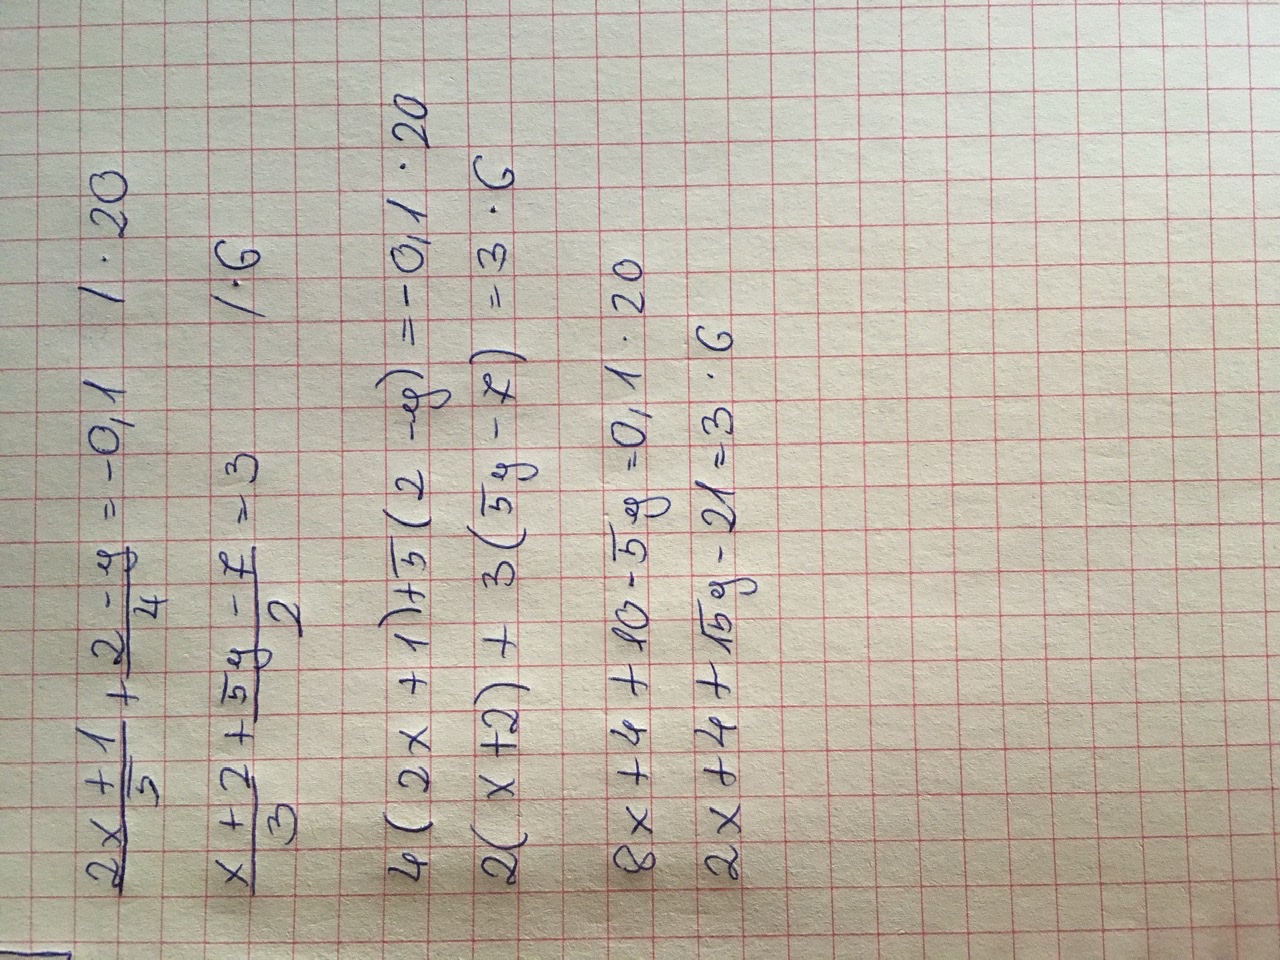 2x + 1/5 + 2 - y/4 = -0,1 / · 20
x + 2/3 + 5y - 7/2 = 3 / · 6
4(2x + 1) + 5(2 - y) = -0,1 · 20
2(x + 2) + 3(5y - 7) = 3 · 6
8x + 4 + 10 - 5y = 0,1 · 20
2x + 4 + 15y - 21 = 3 · 6